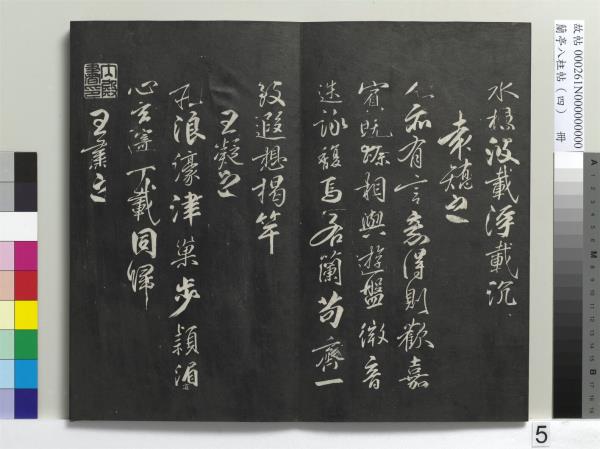 水揚波載浮載沉
袁嶠之
人亦有言意得則歡嘉
賓既臻相與遊盤微音
迭詠馥焉若蘭苟齊一
致遐想揭竿
王凝之
莊浪濠津巢步潁湄冥
心真寄千載同歸
王肅之
故帖 000261N000000000
蘭亭八柱帖（四） 冊
5